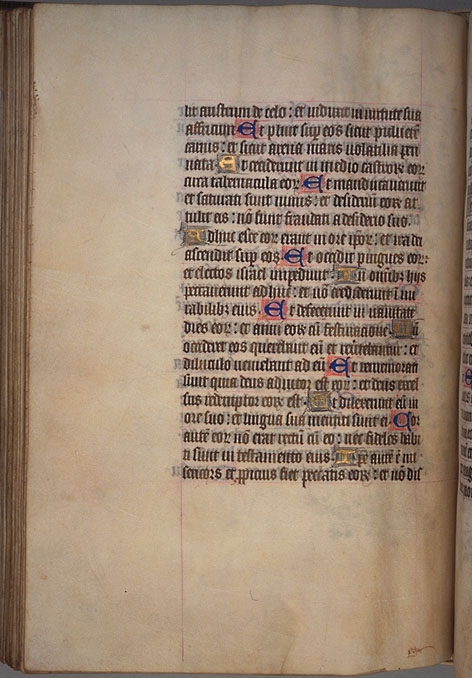 dit austrum de celo : et induxit in virtute sua
affricum Et pluit sup eos sicut pulverē
carnes : et sicut arena maris volatilia pen
nata Et ceciderunt in medio castroꝝ eoꝝ
circa tabernacula eoꝝ Et manducaverunt
et saturati sunt nimis : et desideriū eoꝝ at
tulit eis : nō sunt fraudati a desiderio suo
Adhuc esce eoꝝ erant in ore ipoꝝ : et ira dei
ascendit sup eos Et occidit pingues eoꝝ :
et electos israel impedivit : In omībꝫ hys
peccaverunt adhuc : et nō crediderunt ī mi
rabilibꝫ eius Et defecerunt in vanitate
dies eoꝝ : et anni eoꝝ cū festinatione Cū
occideret eos querebant eū et revertebantur : et
diluculo veniebant ad eū Et rememorati
sunt quia deus adiutor est eoꝝ : et deus excel
sus redemptor eoꝝ est Et dilexerunt eū in
ore suo : et lingua sua mentiti sunt ei Cor
autē eoꝝ nō erat rectū cū eo : nec fideles habi
ti sunt in testamento eius Ipe autē ē mi
sericors et ꝓpicius fiet peccatis eoꝝ : et nō dis